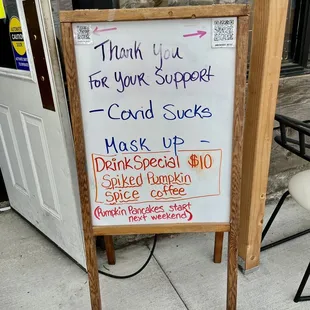 Thank You
For Your Support
- Covid Sucks
Mask up -
Drink Special $10
Spiked Pumpkin
Spice coffee
(Pumpkin Pancakes start
next weekend)